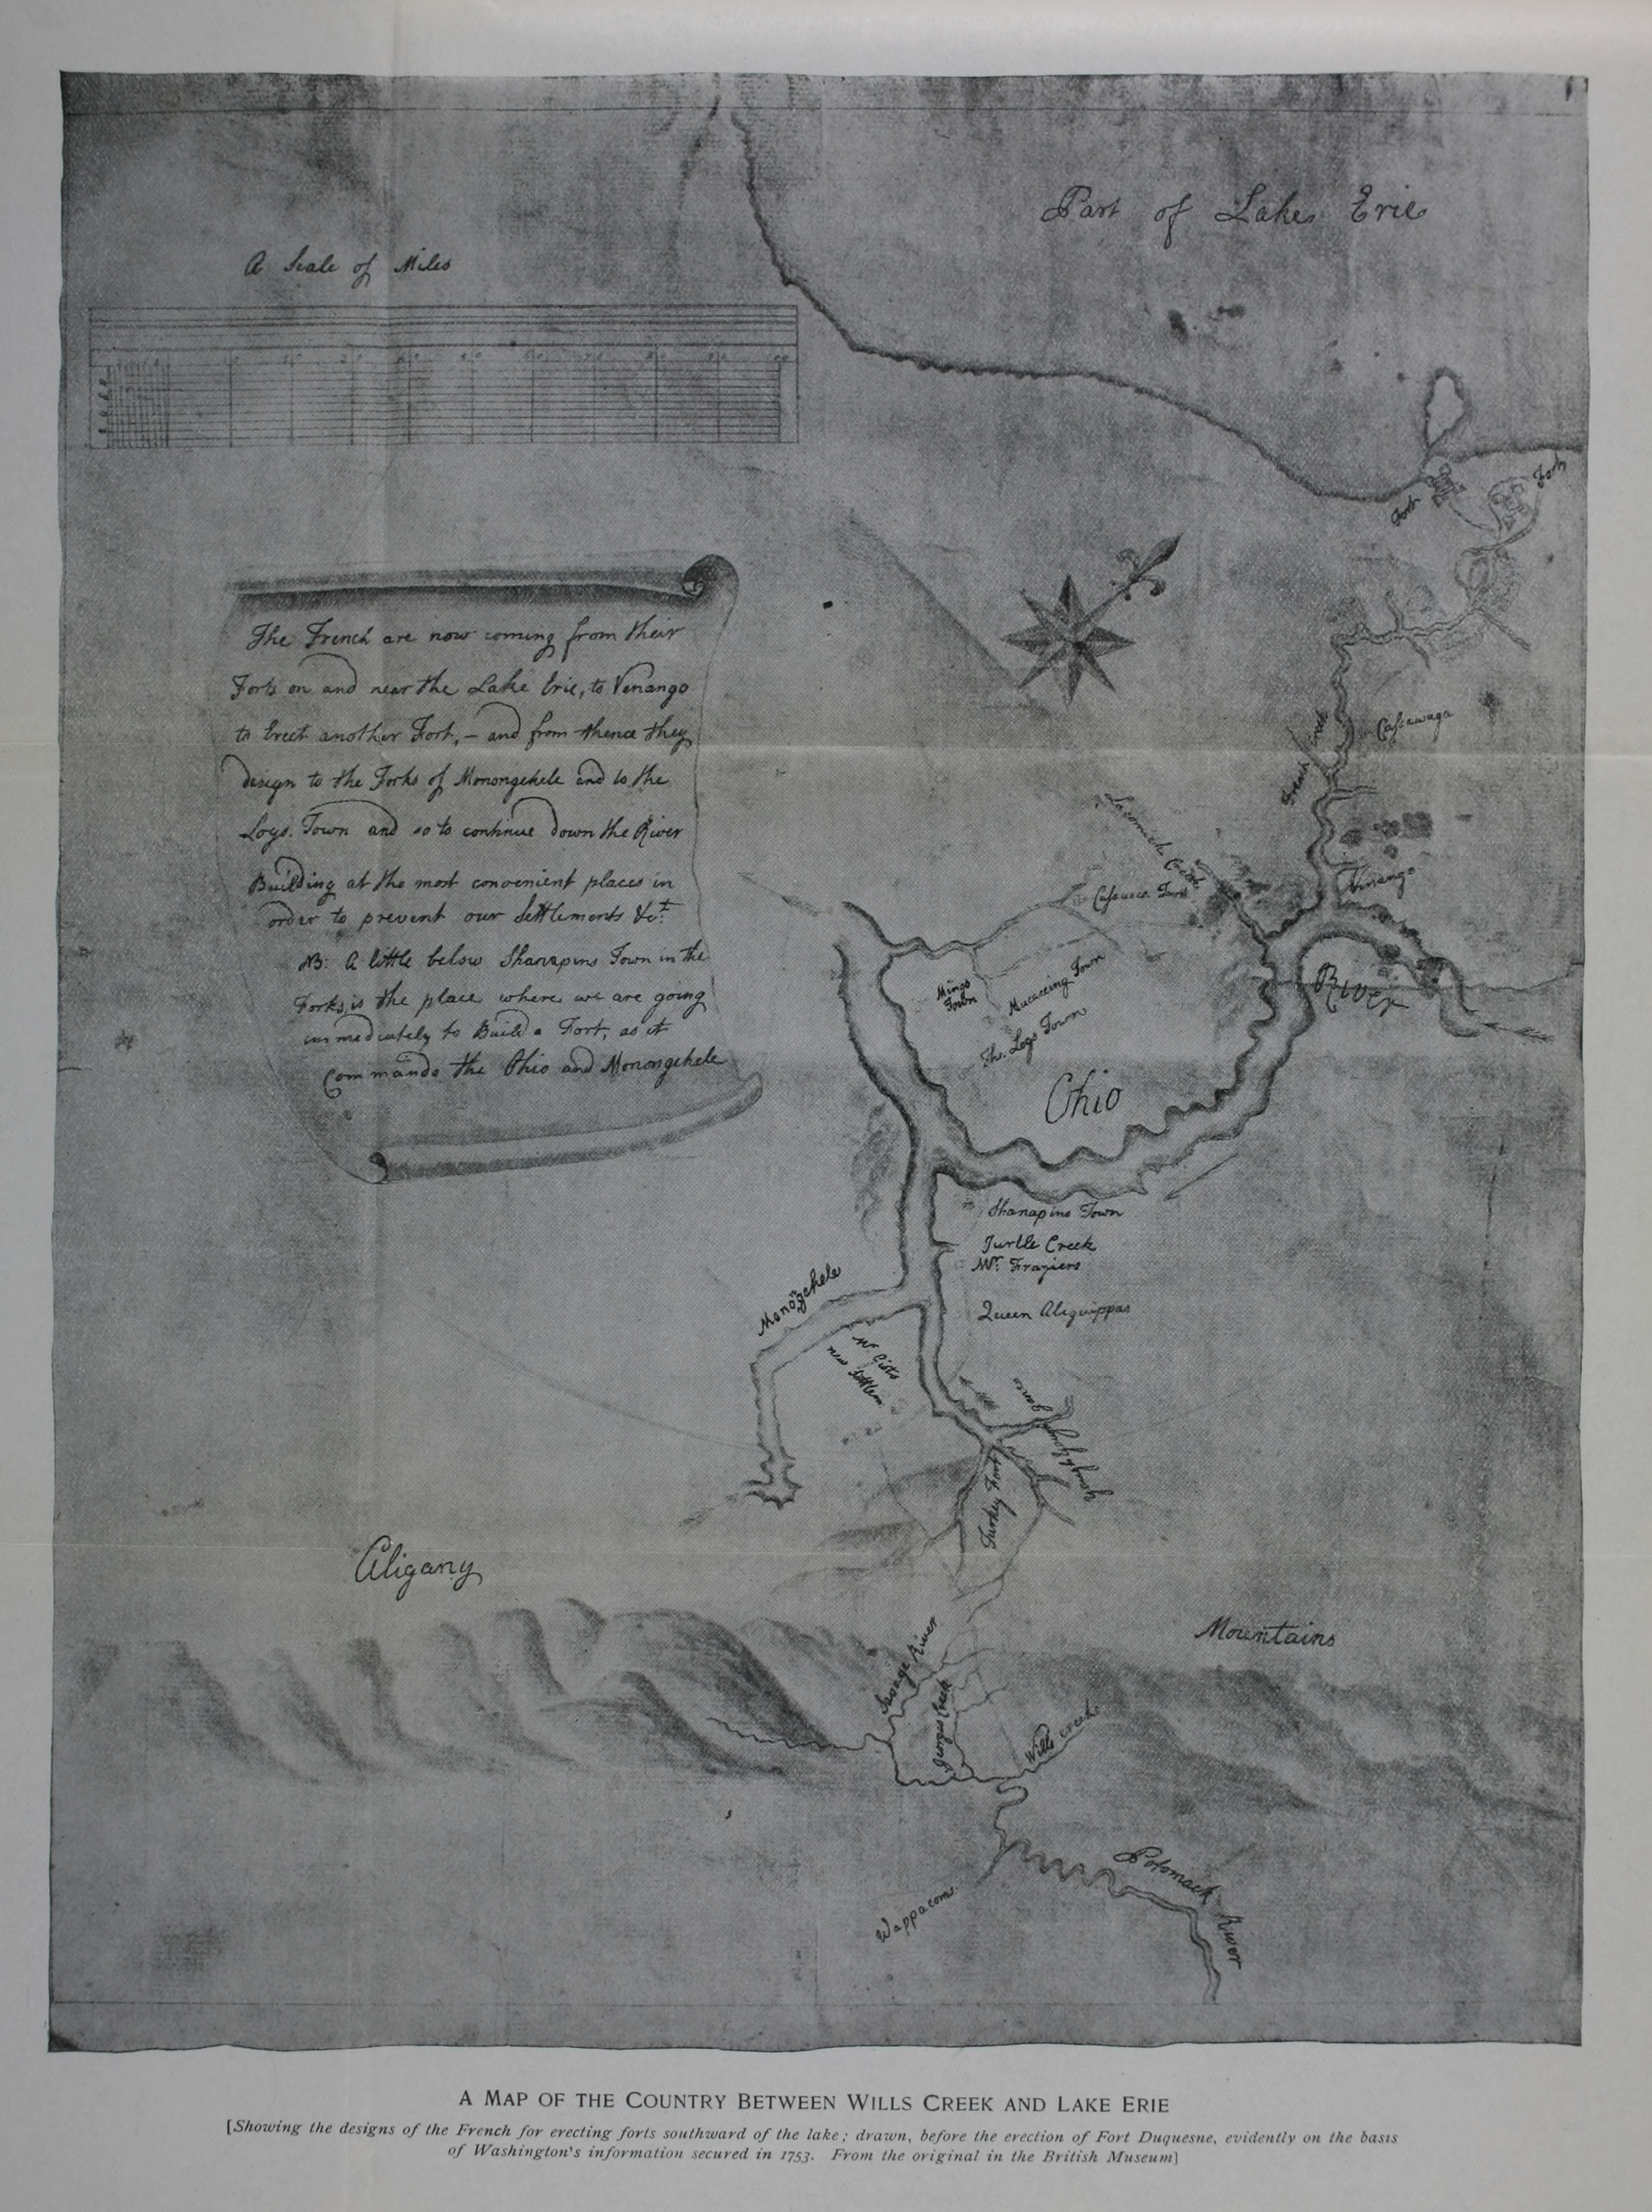 Part of Lake Erie
A Scale of Miles
Fort
Fort
The French are now coming from their
Forts on and near the Lake Erie, to Venango
to Erect another Fort, – and from thence they
design to the Forks of Monongehele and to the
Logs. Town and so to continue down the River
Building at the most convenient places in
order to prevent our Settlements &ct.
NB: A little below Shanapins Town in the
Forks is the place where we are going
immediately to Build a Fort, as it
Commands the Ohio and Monongehele
French Creek
Cassawaga
Venango
Mingo
Town
Mucaceing Town
The Logs Town
River
Ohio
Shanapins Town
Turtle Creek
Mr. Fraziers
Queen Aliquippas
Monongehele
Mr Gists
new Settlem
Turkey Foot
Aligany
Mountains
Savage River
Wills Creek
Potomack River
Wappacom
A MAP OF THE COUNTRY BETWEEN WILLS CREEK AND LAKE ERIE
[Showing the designs of the French for erecting forts southward of the lake; drawn, before the erection of Fort Duquesne, evidently on the basis
of Washington's information secured in 1753. From the original in the British Museum]